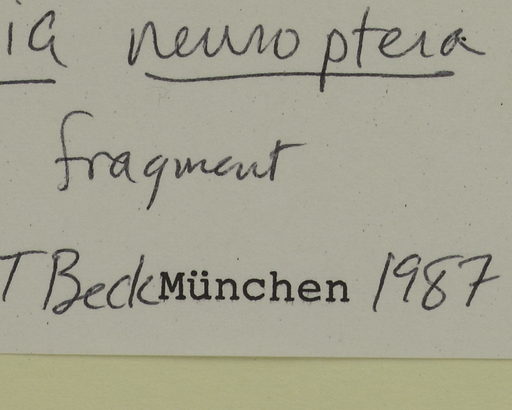 ia neuroptera
fragment
T Beck München 1987